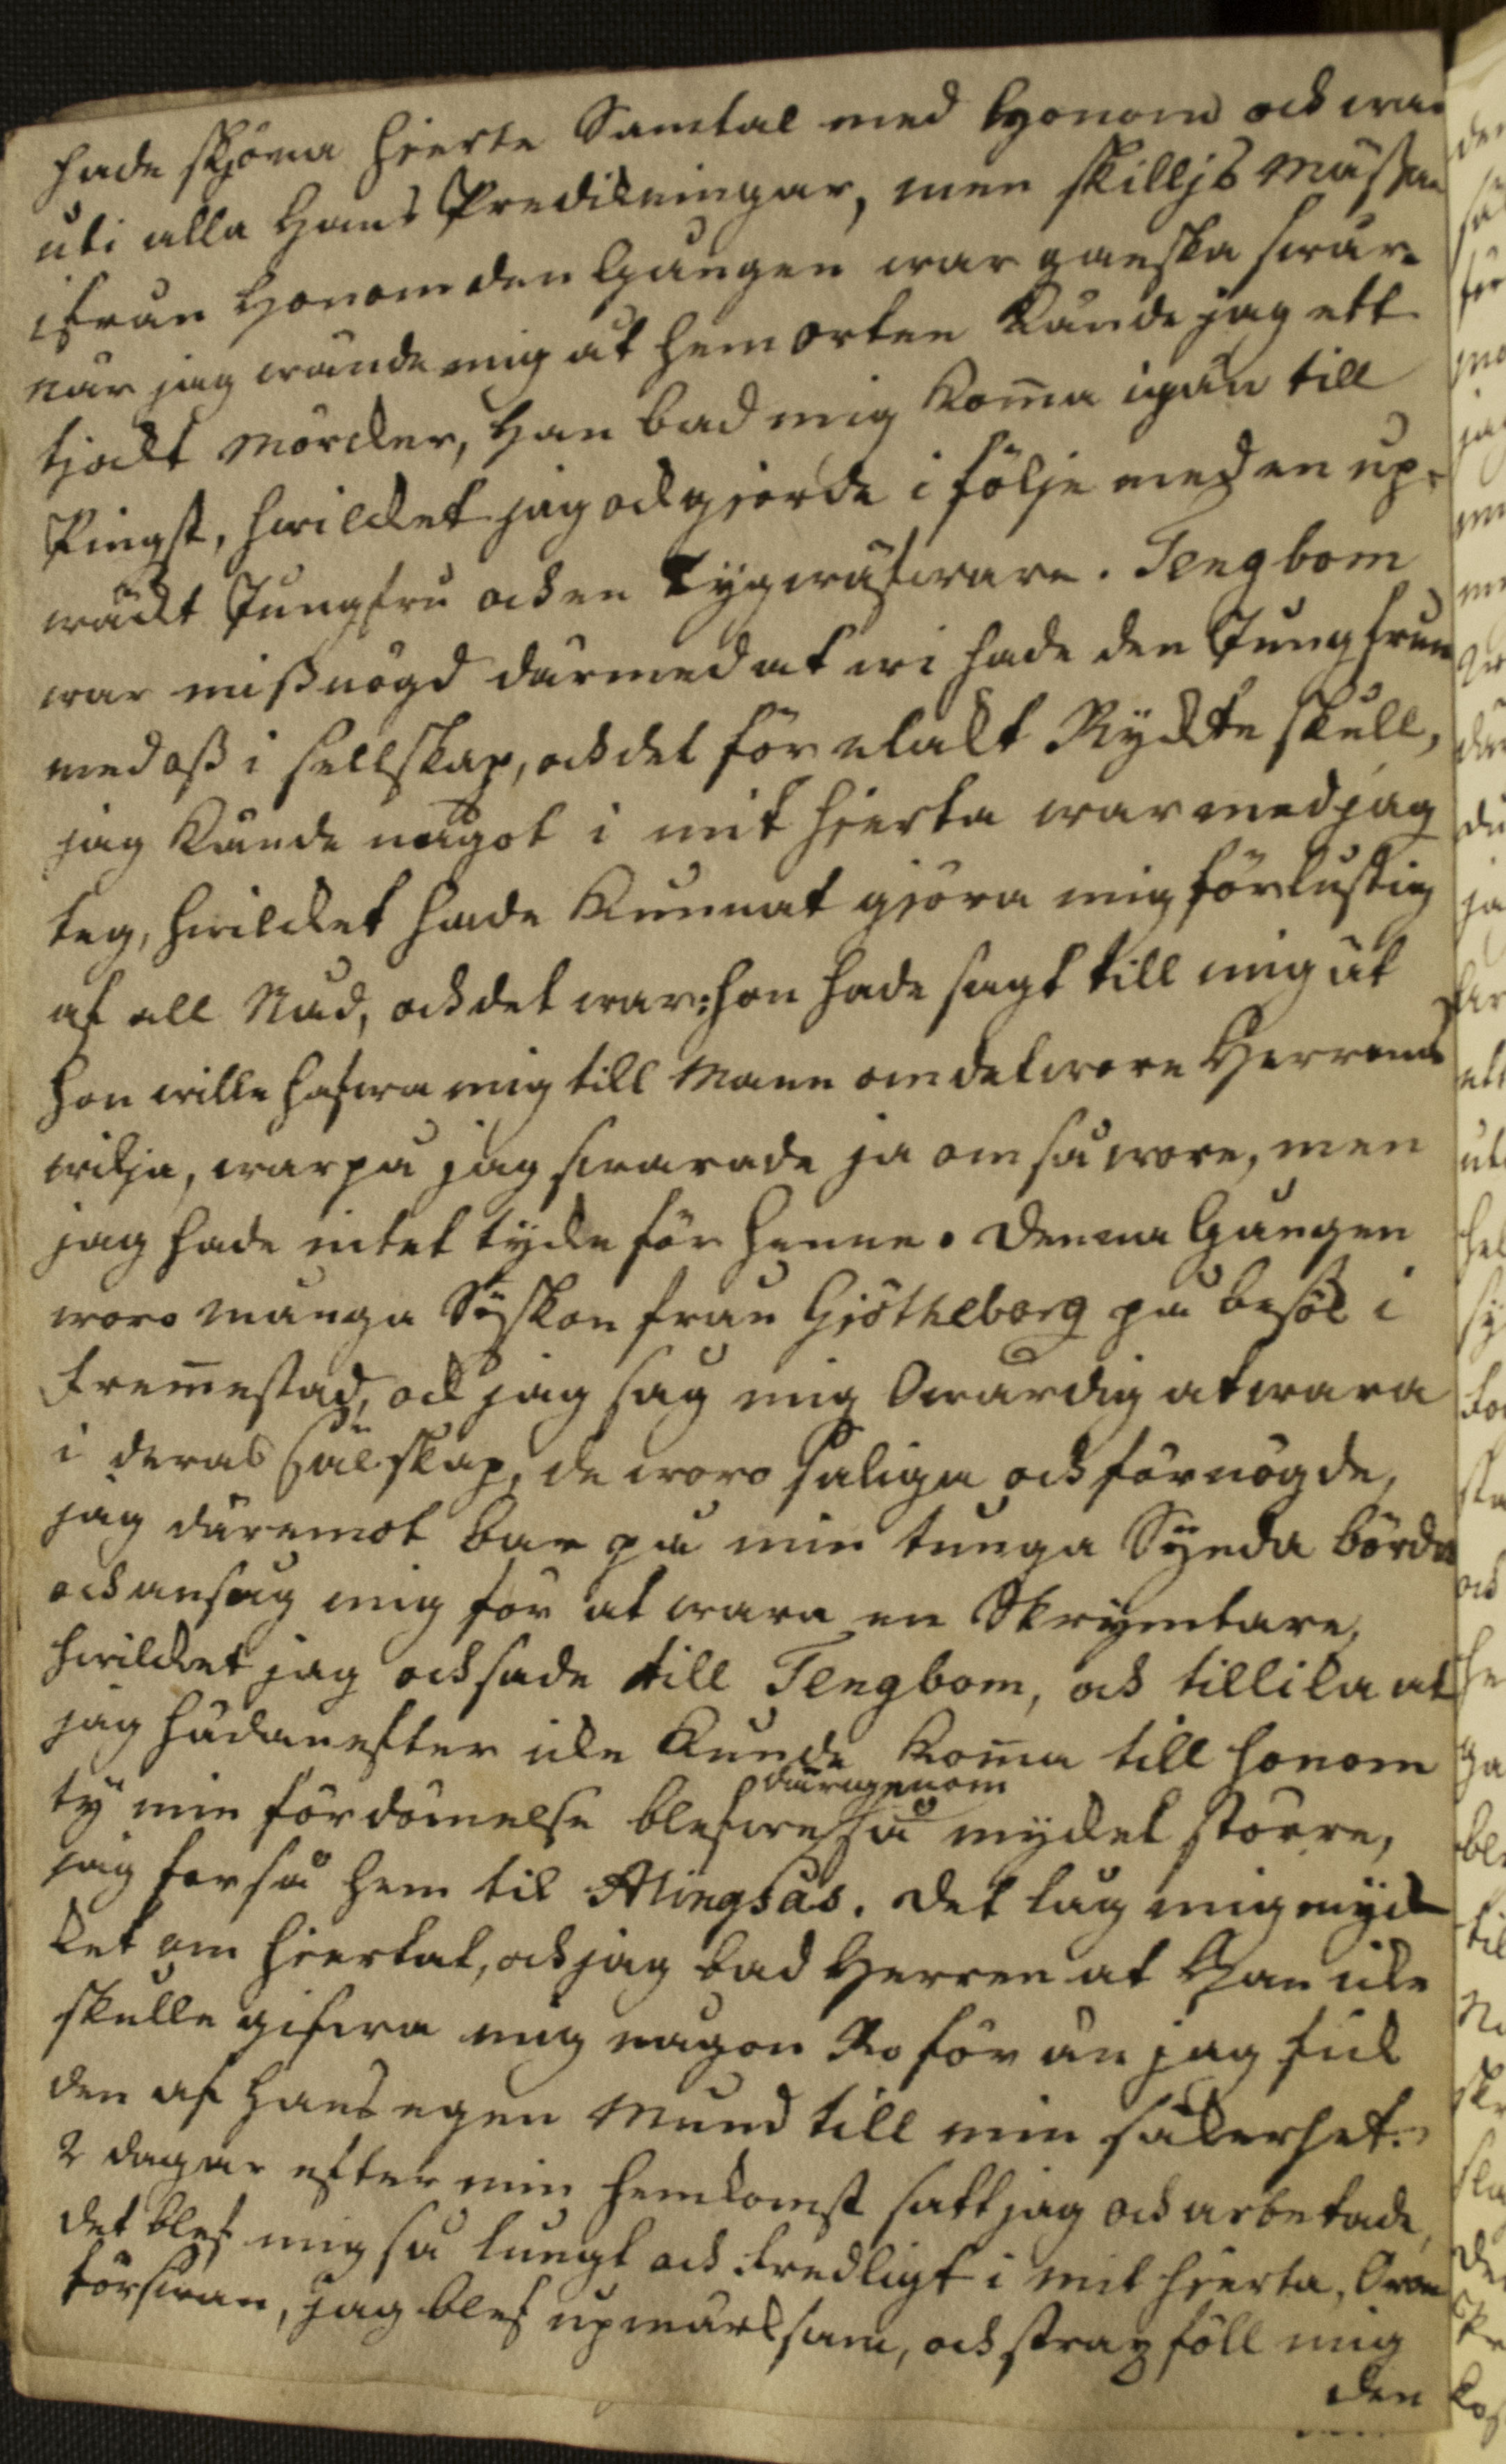 hade skjöna hierte Samtal med Honom ock war
uti alla Hans Predikningar, men skilljs Mässan
ifrån Honom den Gången war ganska swår.
när jag wände mig åt hemorten Kände jag ett
tjokt mörcker, Han bad mig Kom̄a igän till
Pingst, hwilcket jag ock gjorde i följe med en up-
wäckt Jungfru ock en Tygwäfware. Tengbom
war missnögd därmed at wi hade den Jungfrun
med oss i sellskap, ock det för elakt Ryckte skull,
jag Kände något i mit hierta war med jag
teg, hwilcket hade Kunnat gjöra mig förlustig
af all Nåd, ock det war: hon hade sagt till mig at
hon wille hafwa mig till Mann om det wore Herrens
wilja, warpå jag swarade ja om så wore, men
jag hade intet tycke för henne. Denna Gången
woro många Syskon från Gjötheborg på besök i
Frem̄estad, ock jag såg mig Owärdig at wara
i deras sälskap, de woro saliga ock förnögde,
jag däremot bar på min tunga Synda börda
ock ansåg mig för at wara en Skrymtare,
hwilcket jag ock sade till Tengbom, ock tillika at
jag hädanefter icke Kunde Kom̄a till honom
ty min fördömelse blefwe därigenom så myckel större,
jag for så hem til Alingsås. det låg mig myc-
ket om hiertat, ock jag bad Herren at Han icke
skulle gifwa mig någon Ro för än jag fick
den af Hans egen Mund till min säkerhet.
2 dagar efter min hemkomst satt jag ock arbetade,
det blef mig så lungt ock fredligt i mit hierta, Oron
förswan, jag blef upmärksam, ock strax föll mig
den